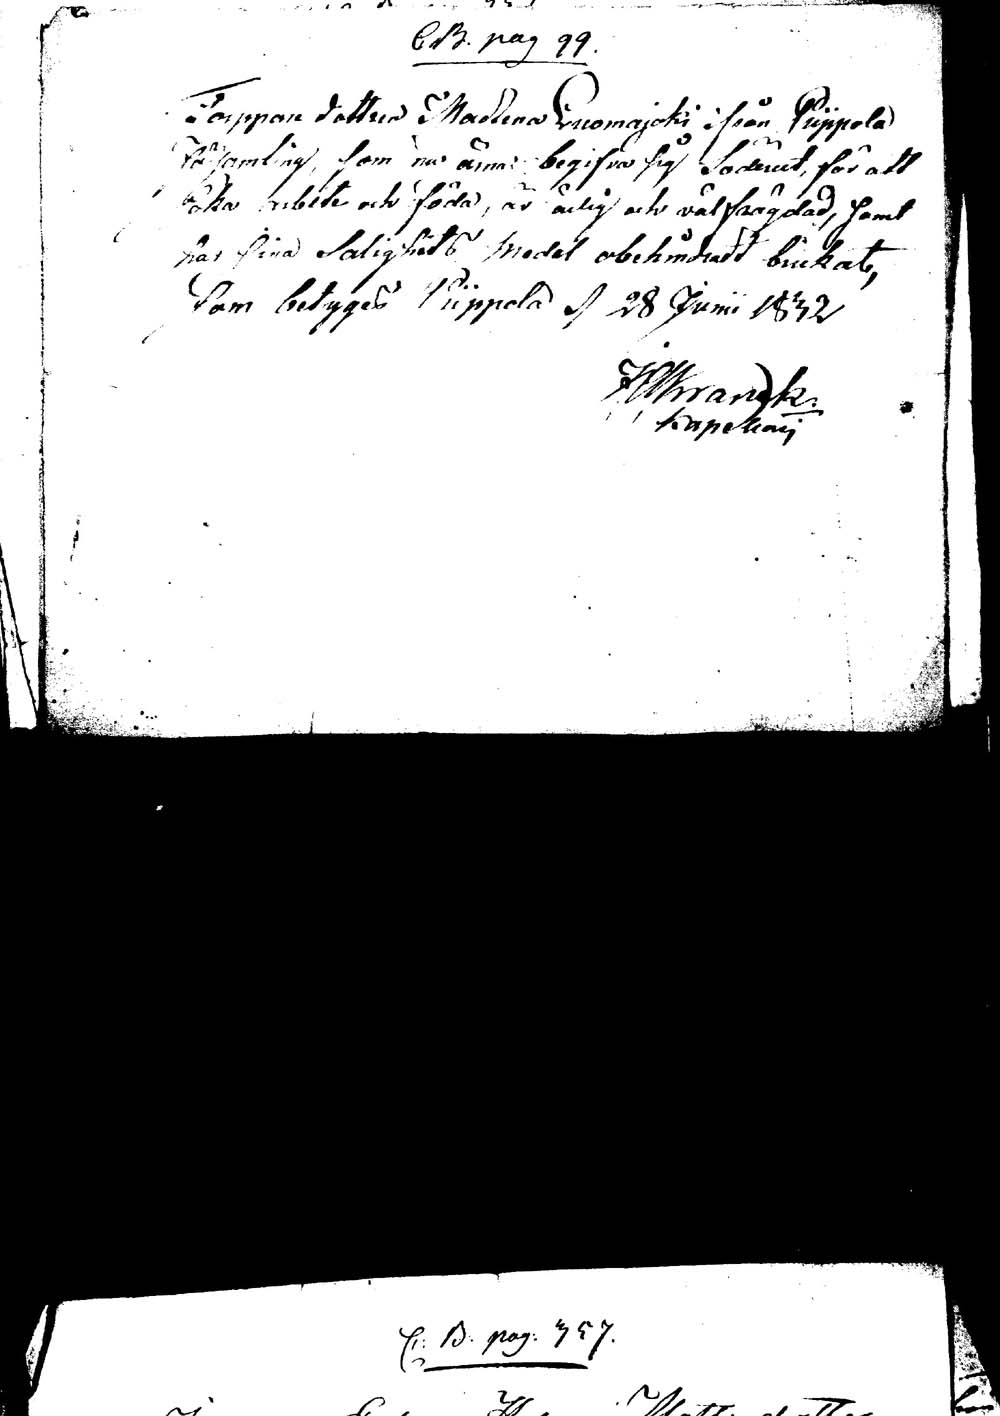 C.B. pag 99.
Torppare dottren Madlena Luomajoki ifrån Piippola
församling, som nu ärnar begifva sig Söderut, för att
söka arbete och föda, är ärlig och välfrägdad, samt
har sina Salighets Medel obehindradt brukat,
Som betygas Piippola d 28 Junii 1832
Wranck.
Kapellan
C. B. pag: 357.